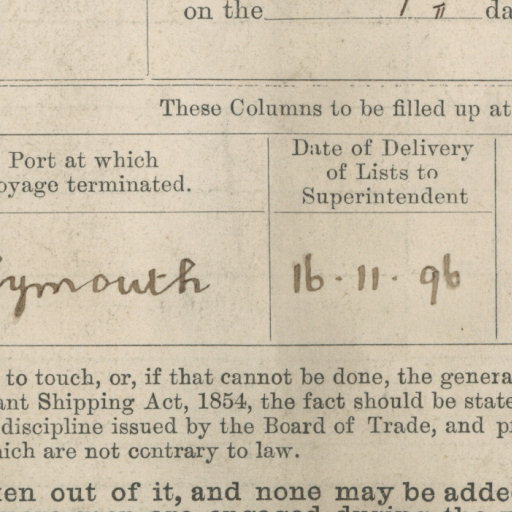 on the
These Columns to be filled up at
Port at which
voyage terminated.
Date of Delivery
of Lists to
Superintendent
lymouth
16 · 11 · 96
to touch, or, if that cannot be done, the genera
ant Shipping Act, 1854, the fact should be state
discipline issued by the Board of Trade, and p
hich are not contrary to law.
en out of it, and none may be adde